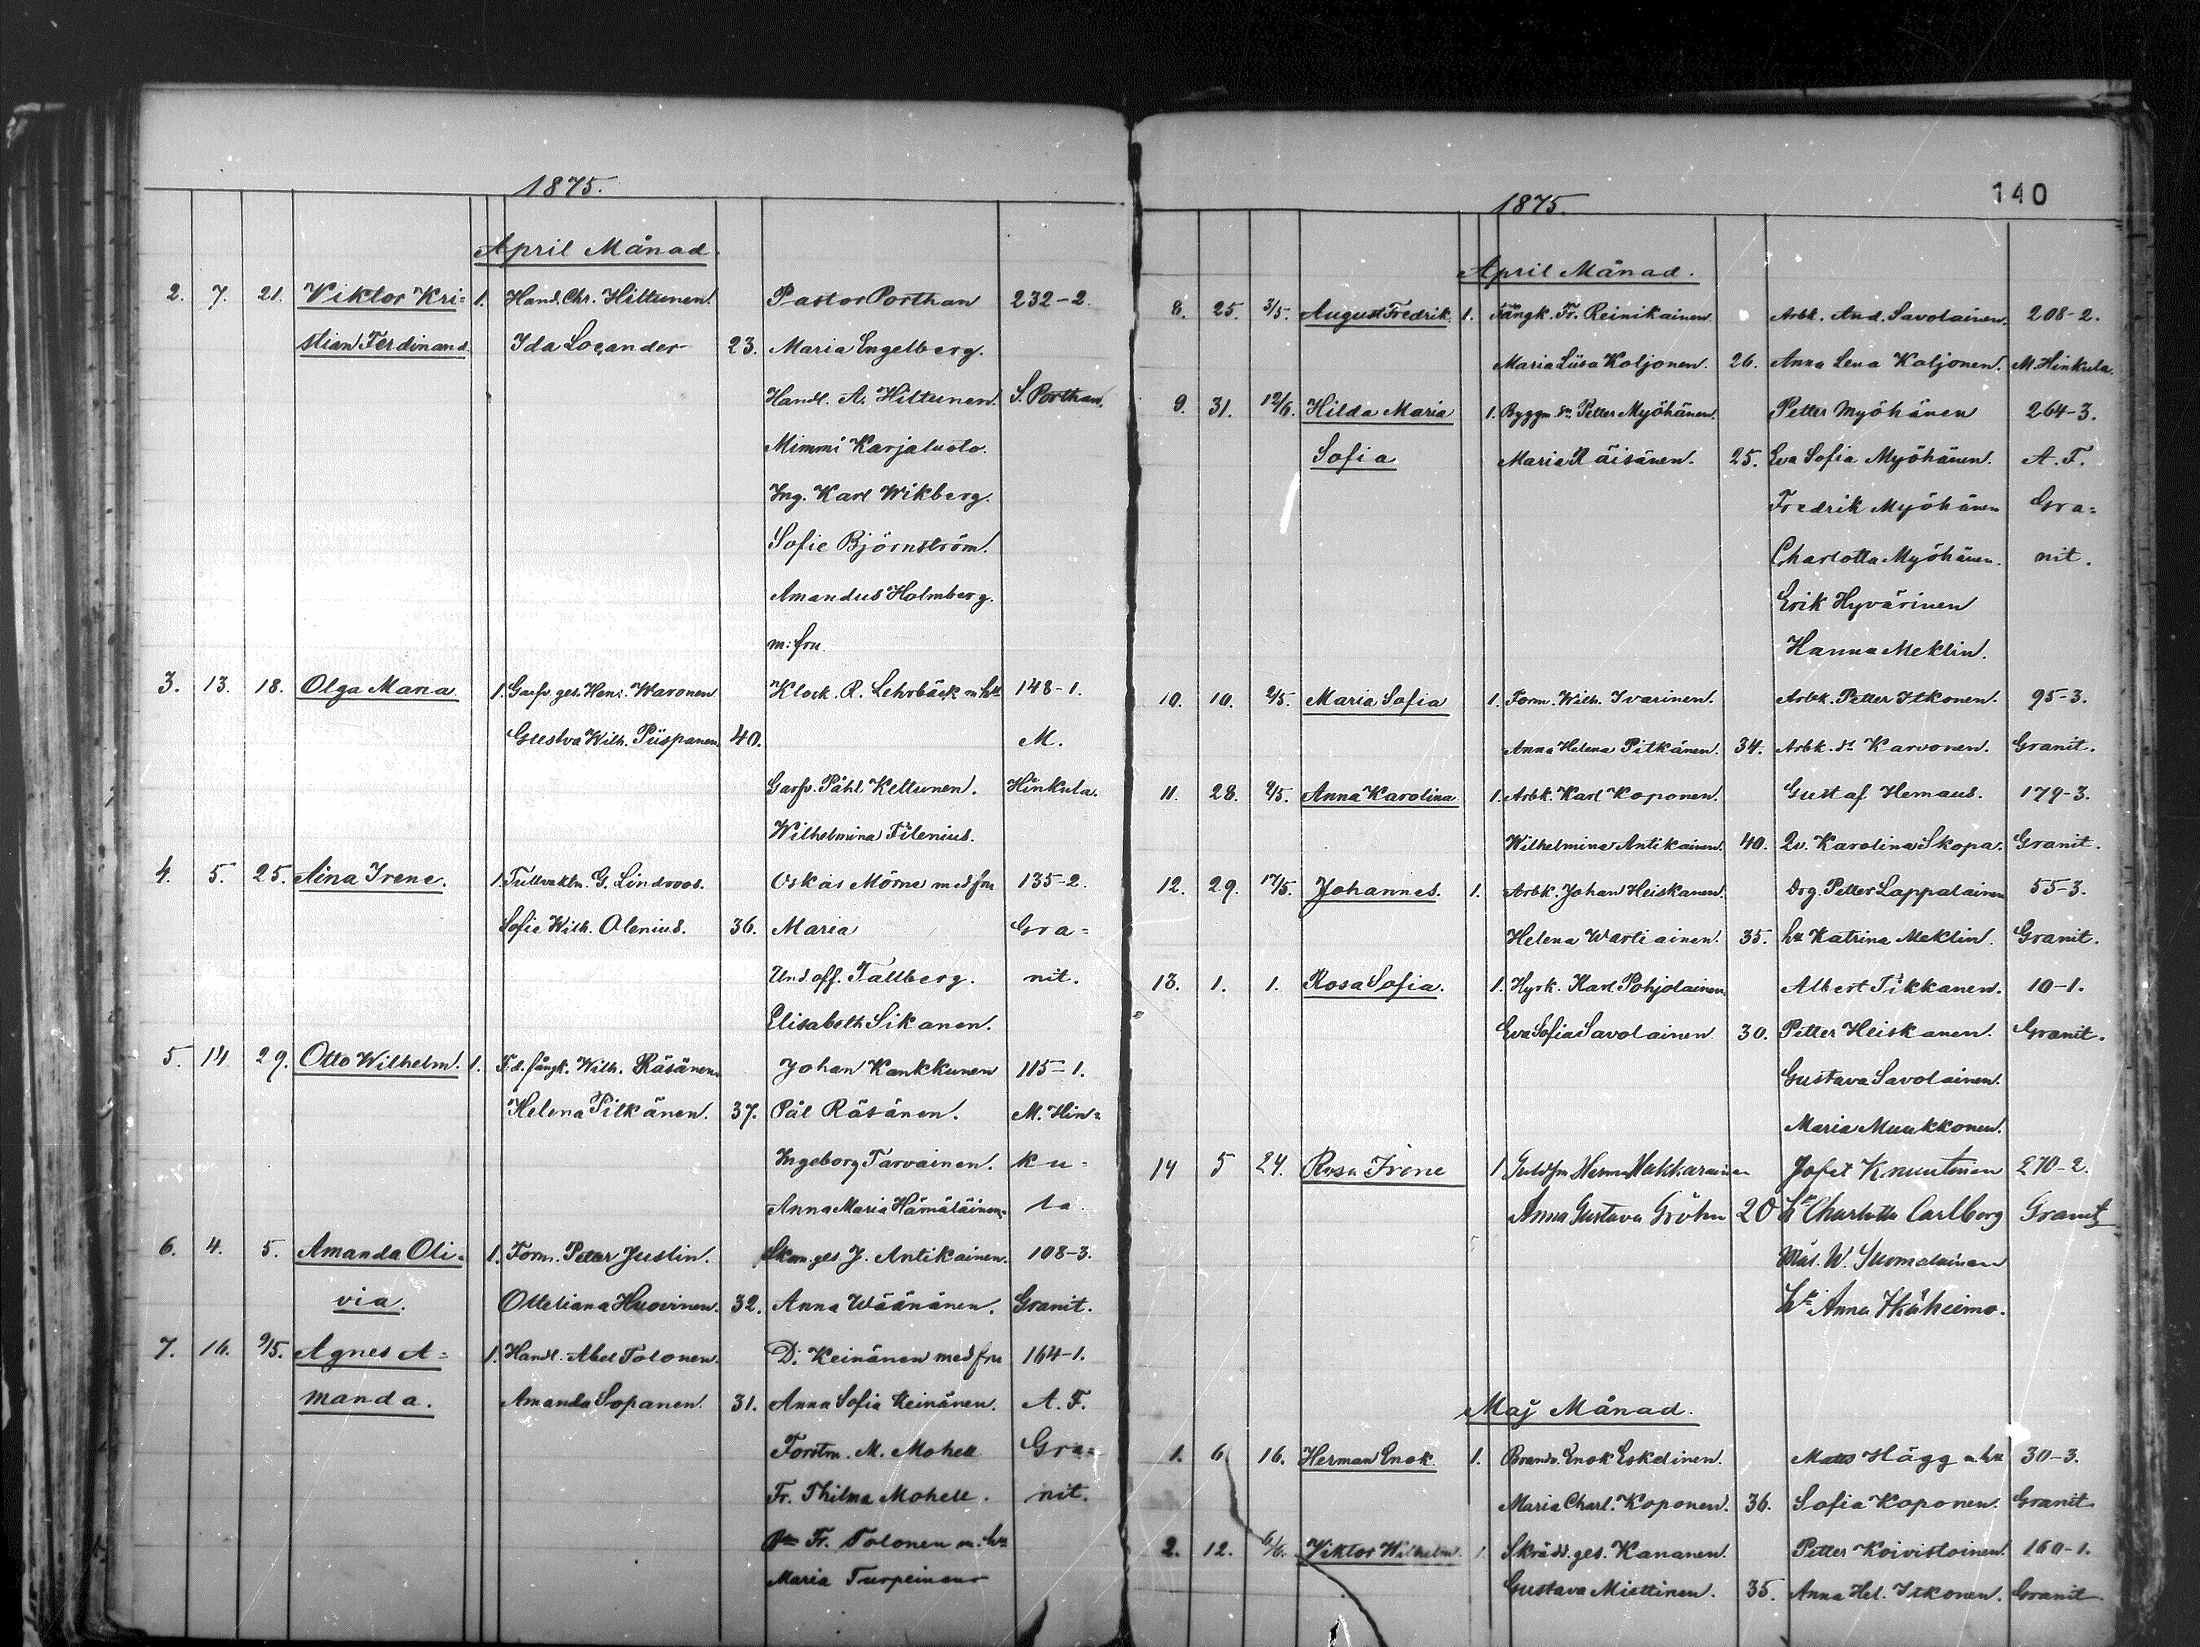 1875.
April Månad.
2. 7. 21. Viktor Kri= 1. Hand. Chr. Hiltunen. Pastor Porthan 232-2.
stian Ferdinand. Ida Locander 23. Maria Engelberg.
Handl. A. Hiltunen. S. Porthan.
Mimmi Karjaluoto.
Ing. Karl Wikberg.
Sofie Björnström.
Amandus Holmberg.
m: fru
3. 13. 18. Olga Maria 1. Garfv. ges. Henr. Waronen Klock. R. Lehrbäck m h: 148-1.
Gustva Wilh. Piispanen 40. M.
Garfv. Påhl Keltunen. Hinkula.
Wilhelmina Filenius.
4. 5. 25. Aina Irene. 1. Tullvaktm. G. Lindroos. Oskar Mörne med fru 135-2.
Sofie Wilh. Olenius. 36. Maria Gra=
Und. off. Tallberg. nit.
Elisabeth Sikanen.
5. 14 29. Otto Wilhelm. 1. F.d. fångk. Wilh. Räsänen. Johan Kankkunen 115-1.
Helena Pitkänen. 37. Pål Räsänen. M. Hin=
Ingeborg Tarvainen. ku=
Anna Maria Hämäläinen. la.
6. 4. 5. Amanda Oli= 1. Form. Peter Justin. Skom. ges J. Antikainen. 108-3.
via. Otteliana Huovinen. 32. Anna Wäänänen. Granit.
7. 16. 9/5. Agnes A= 1. Handl. Abel Tolonen. D. Keinänen med fru 164-1.
manda. Amanda Sopanen. 31. Anna Sofia Keinänen. A. F.
Forstm. M. Mohell Gra=
Fr. Thilma Mohell. nit.
Fr. Tolonen m. h:
Maria Turpeinen
1875. 140
April Månad.
8. 25. 3/5. August Fredrik. 1. Fångk. Fr. Reinikainen. Arbk. And. Savolainen. 208-2.
Maria Liisa Koljonen. 26. Anna Lena Koljonen. M. Hinkula.
9. 31. 12/6. Hilda Maria 1. Byggm. sn Petter Myöhänen. Petter Myöhänen 264-3.
Sofia Maria Räisänen. 25. Eva Sofia Myöhänen. A. F.
Fredrik Myöhänen Gra=
Charlotta Myöhänen. nit.
Erik Hyvärinen
Hanna Meklin.
10. 10. 2/5. Maria Sofia 1. Form. Wilh. Ivarinen. Arbk. Petter Itkonen. 95-3.
Anna Helena Pitkänen. 34. Arbk. d:r Karvonen. Granit.
11. 28. 9/5. Anna Karolina 1. Arbk. Karl Koponen. Gustaf Hemaus. 179-3.
Wilhelmina Antikainen. 40. Qv. Karolina Skopa. Granit.
12. 29. 17/5. Johannes. 1. Arbk. Johan Heiskanen. Drg. Petter Lappalainen 55-3.
Helena Wartiainen. 35. h:u Katrina Meklin. Granit.
13. 1. 1. Rosa Sofia. 1. Hyrk. Karl Pohjolainen. Albert Tikkanen. 10-1.
Eva Sofia Savolainen 30. Petter Heiskanen. Granit.
Gustava Savolainen.
Maria Muukkonen.
14 5 24. Rosa Irene 1 Herm. Jofet Knuutinen 270-2.
Anna Gustava Gröhn 20 Charlotta Carlborg Granit
Mål. W. Suomalainen
Anna
Maj Månad.
1. 6 16. Herman Enok. 1. Brandv. Enok Eskelinen. Matts Hägg m. h:u 30-3.
Maria Charl. Koponen. 36. Sofia Koponen. Granit.
2. 12. 6/6. Viktor Wilhelm. 1. Skrädd. ges. Kananen. Petter Koivistoinen. 160-1.
Gustava Miettinen. 35. Anna Hel. Itkonen. Granit.